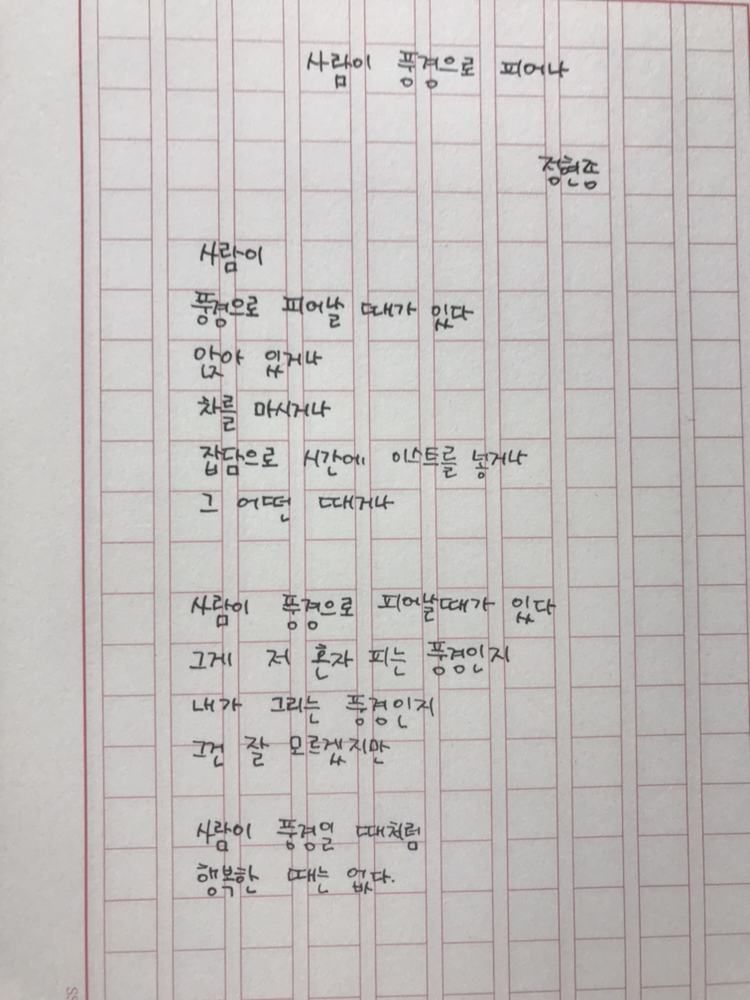 사람이 풍경으로 피어나
정현종
사람이
풍경으로 피어날 때가 있다
앉아 있거나
차를 마시거나
잡담으로 시간에 이스트를 넣거나
그 어떤 때거나
사람이 풍경으로 피어날때가 있다
그게 저 혼자 피는 풍경인지
내가 그리는 풍경인지
그건 잘 모르겠지만
사람이 풍경일 때처럼
행복한 때는 없다.